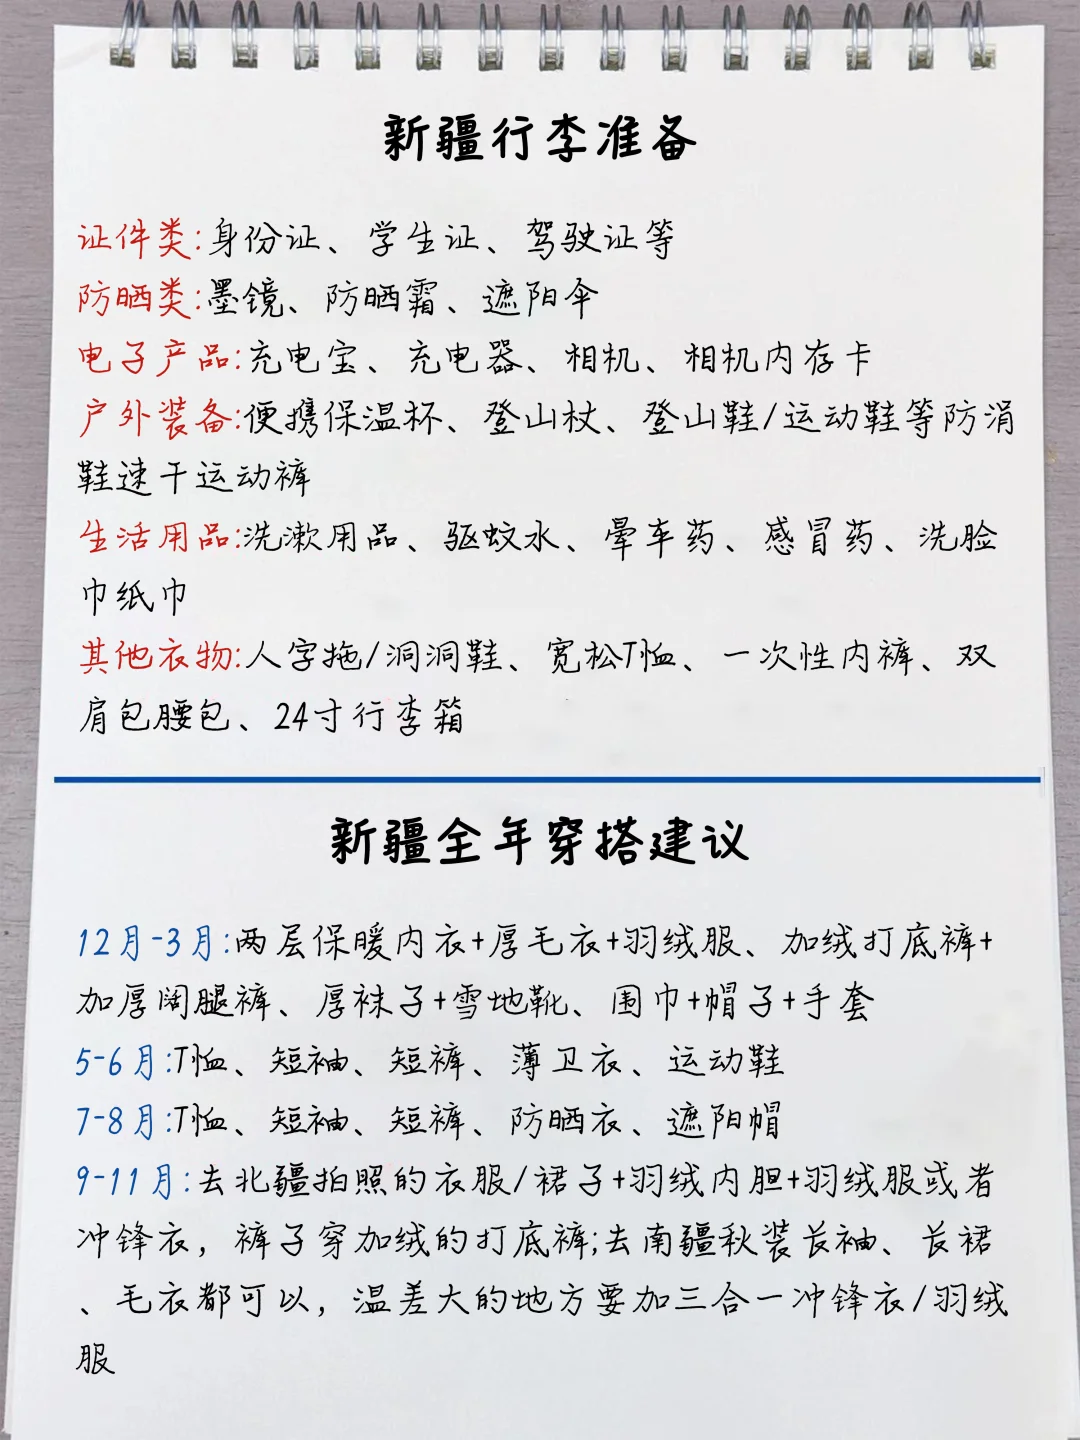 新疆行李准备
证件类:身份证、学生证、驾驶证等
防晒类:墨镜、防晒霜、遮阳伞
电子产品:充电宝、充电器、相机、相机内存卡
户外装备:便携保温杯、登山杖、登山鞋/运动鞋等防滑
鞋速干运动裤
生活用品:洗漱用品、驱蚊水、晕车药、感冒药、洗脸
巾纸巾
其他衣物:人字拖/洞洞鞋、宽松T恤、一次性内裤、双
肩包腰包、24寸行李箱
新疆全年穿搭建议
12月-3月:两层保暖内衣+厚毛衣+羽绒服、加绒打底裤+
加厚阔腿裤、厚袜子+雪地靴、围巾+帽子+手套
5-6月:T恤、短袖、短裤、薄卫衣、运动鞋
7-8月:T恤、短袖、短裤、防晒衣、遮阳帽
9-11月:去北疆拍照的衣服/裙子+羽绒内胆+羽绒服或者
冲锋衣，裤子穿加绒的打底裤;去南疆秋装长袖、长裙
、毛衣都可以，温差大的地方要加三合一冲锋衣/羽绒
服